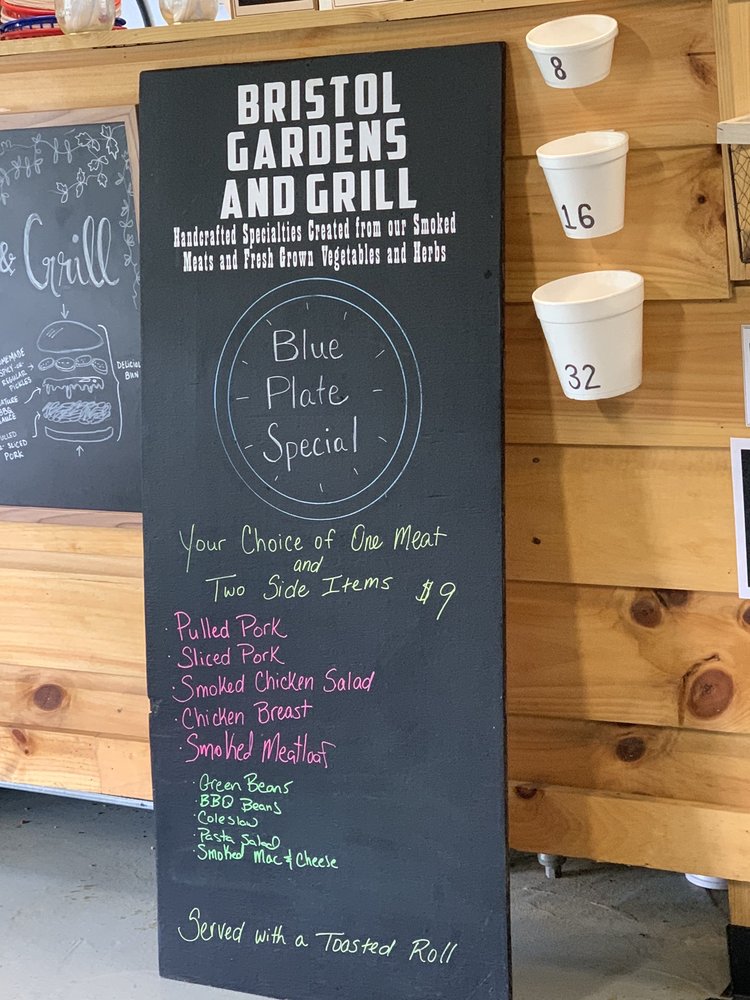 BRISTOL
GARDENS
AND GRILL
Handcrafted Specialties Created from our Smoked
Meats and Fresh Grown Vegetables and Herbs
Blue
Plate
Special
Your Choice of One Meat
and
Two Side Items $9
· Pulled Pork
· Sliced Pork
· Smoked Chicken Salad
· Chicken Breast
· Smoked Meatloaf
· Green Beans
· BBQ Beans
· Coleslaw
· Pasta Salad
· Smoked Mac & Cheese
Served with a Toasted Roll
& Grill
REGULAR
PICKLES
BBQ
SLICED
PORK
8
16
32